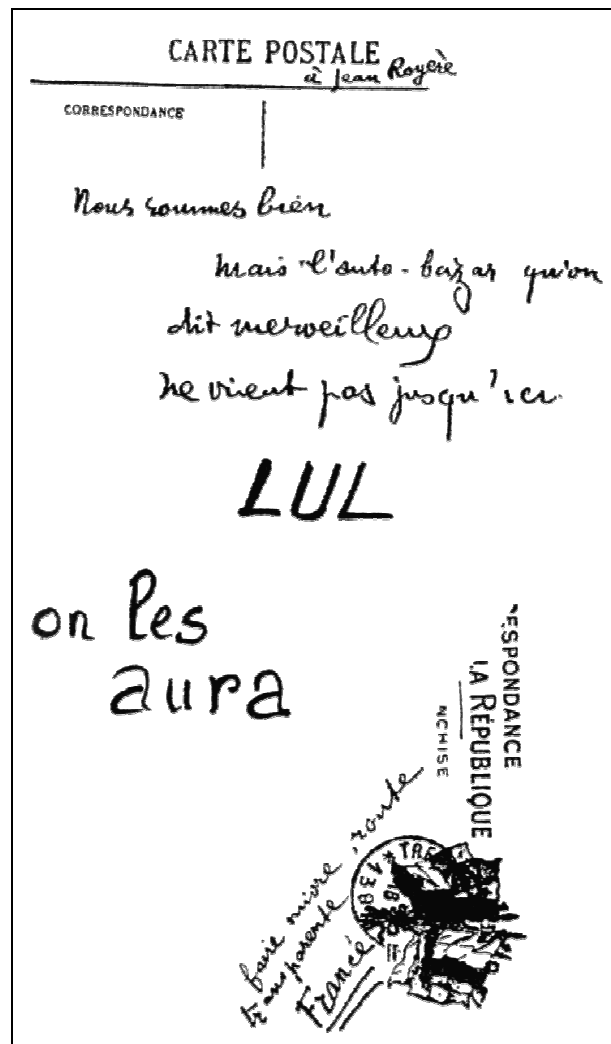 CARTE POSTALE
à Jean Royère
CORRESPONDANCE
Nous sommes bien
mais l'auto-bazar qu'on
dit merveilleux
ne vient pas jusqu'ici
LUL
on les
aura
ESPONDANCE
LA RÉPUBLIQUE
NCHISE
faire suivre route
transparente
France
TRE